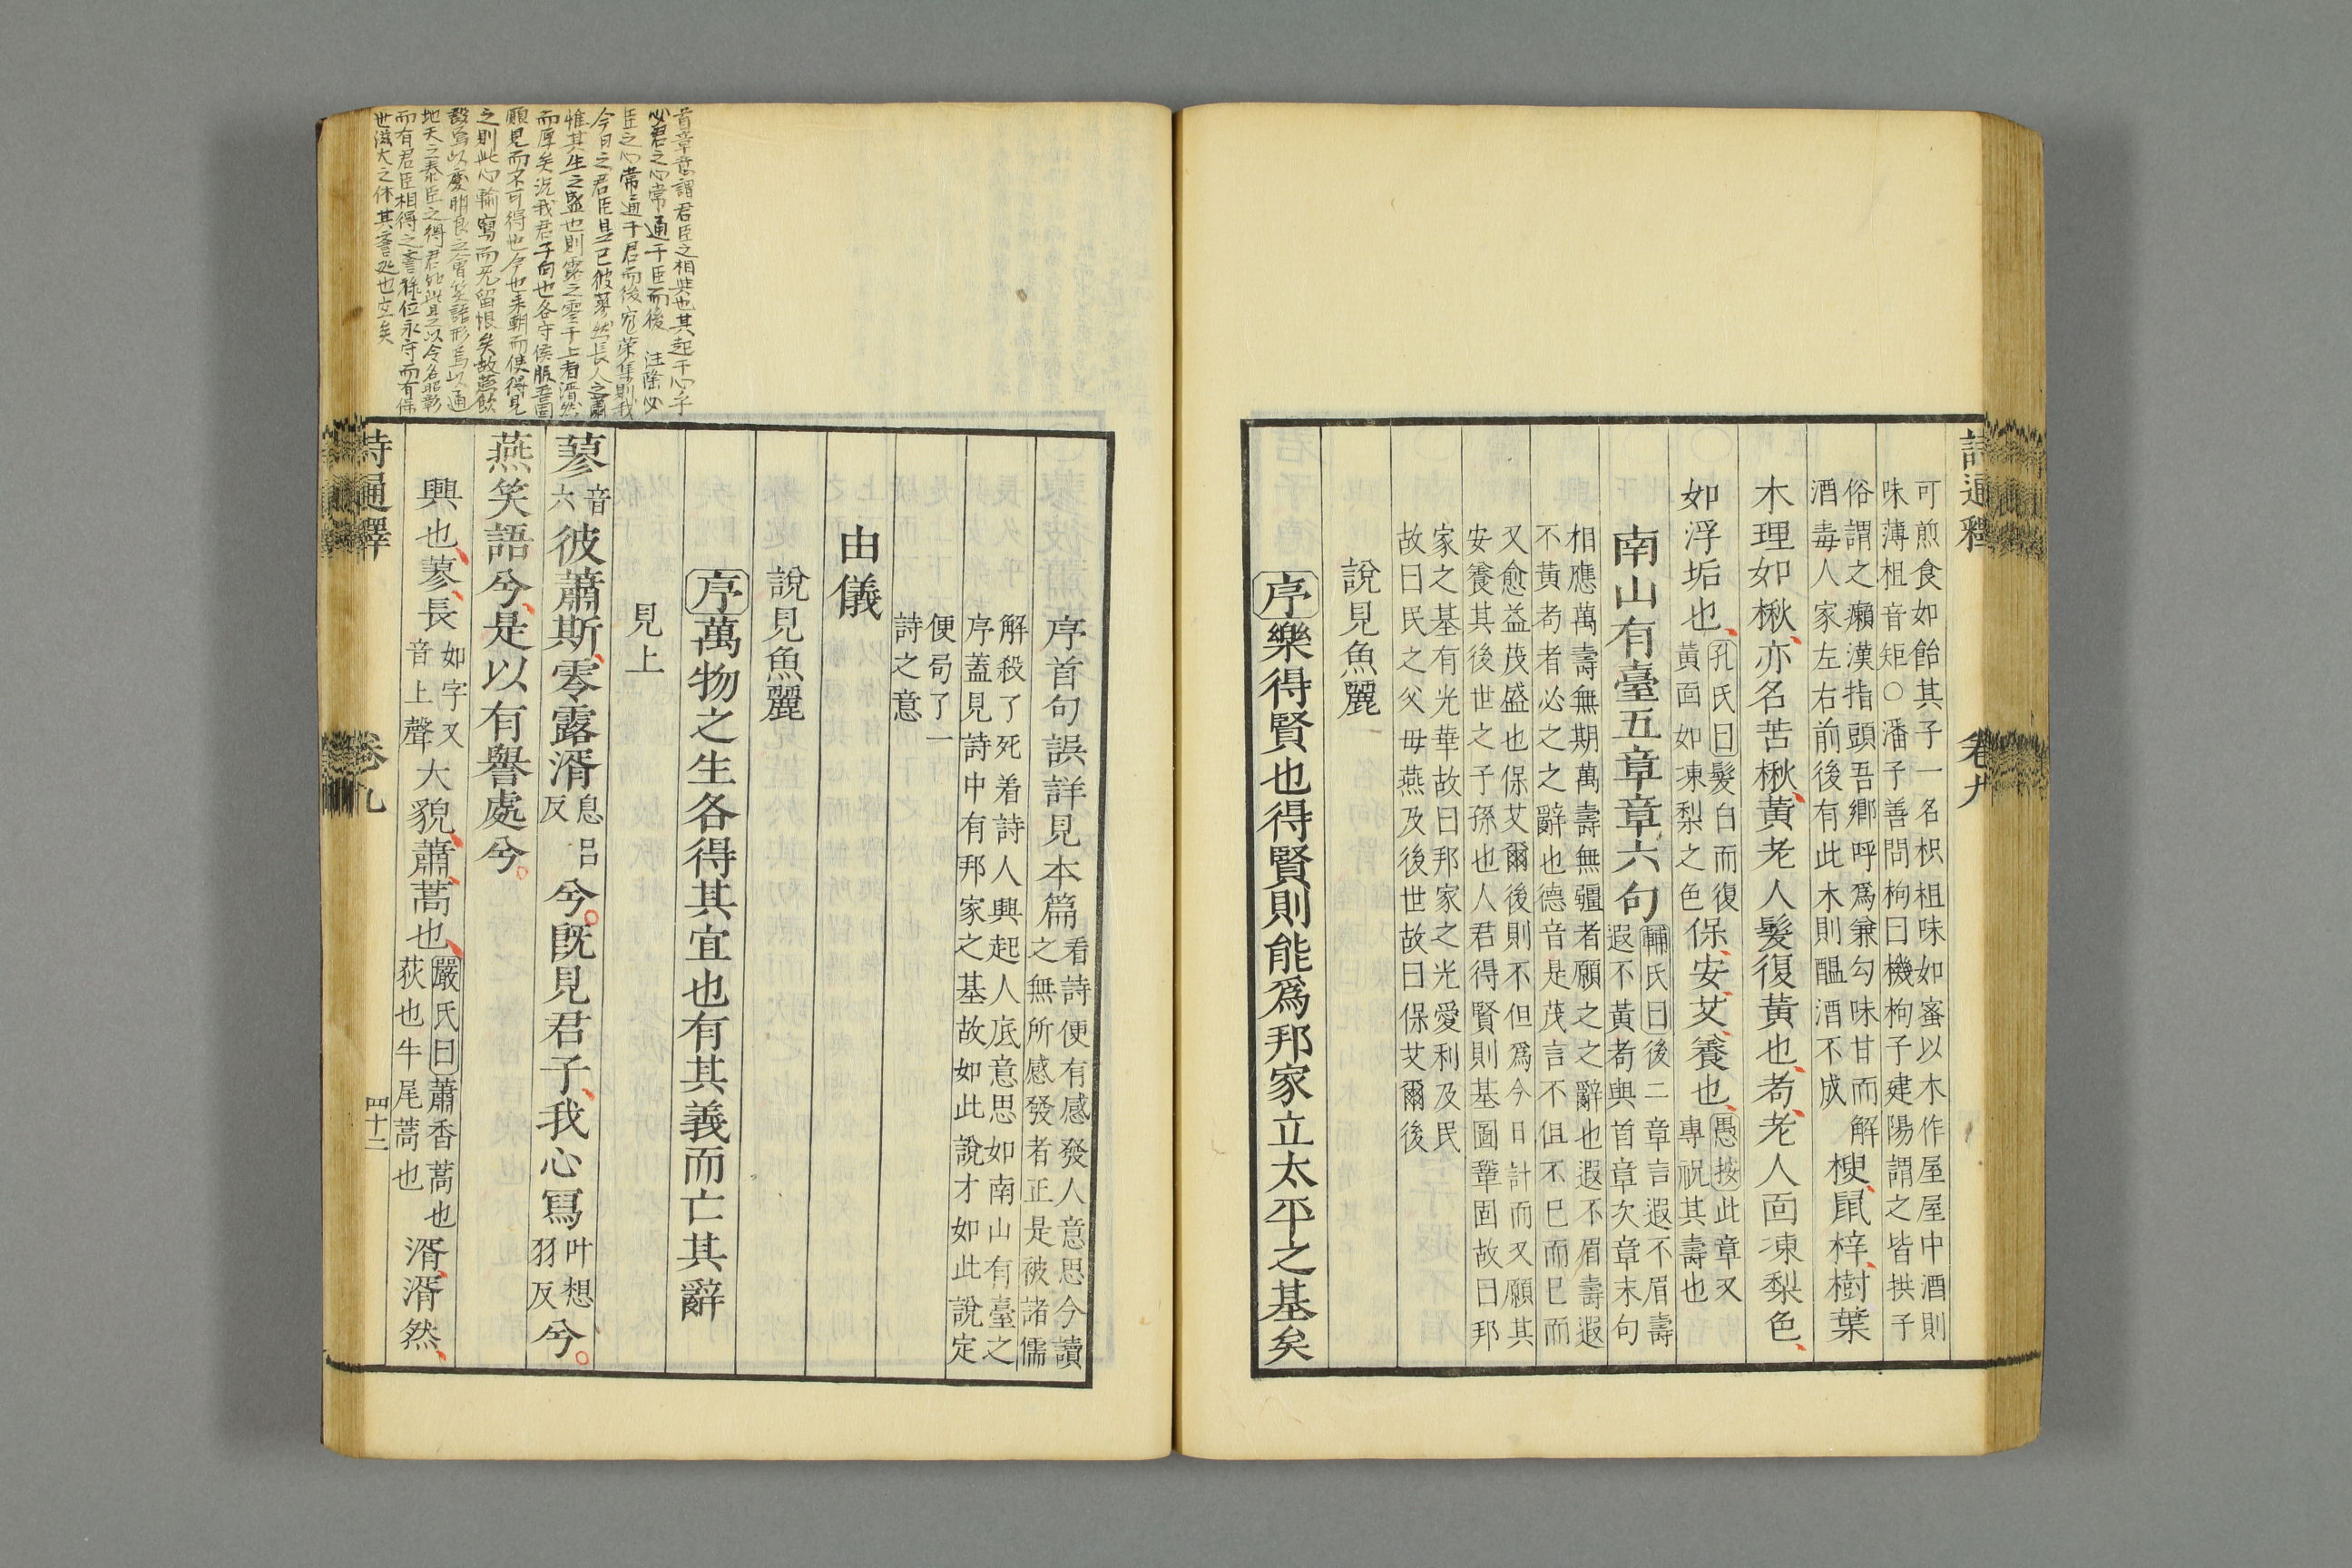 詩通釋
卷九
可煎食如飴其子一名枳柤味如蜜以木作屋屋中酒則
味薄柤音矩○潘子善問枸曰機枸子建陽謂之皆拱子
俗謂之癩漢指頭吾鄉呼爲兼勾味甘而解
酒毒人家左右前後有此木則醖酒不成
楰鼠梓樹葉
木理如楸亦名苦楸黃老人髮復黃也耇老人面凍梨色
如浮垢也
孔氏曰髮白而復
黃面如凍梨之色
保安艾養也
愚按此章又
專祝其壽也
南山有臺五章章六句
輔氏曰後二章言遐不眉壽
遐不黃耇與首章次章末句
相應萬壽無期萬壽無疆者願之之辭也遐不眉壽遐
不黃耇者必之之辭也德音是茂言不但不已而已而
又愈益茂盛也保艾爾後則不但爲今日計而又願其
安養其後世之子孫也人君得賢則基圖鞏固故曰邦
家之基有光華故曰邦家之光愛利及民
故曰民之父毋燕及後世故曰保艾爾後
說見魚麗
序樂得賢也得賢則能爲邦家立太平之基矣
序首句誤詳見本篇
看詩便有感發人意思今讀
之無所感發者正是被諸儒
解殺了死着詩人興起人底意思如南山有臺之
序蓋見詩中有邦家之基故如此說才如此說定
便局了一
詩之意
由儀
說見魚麗
序萬物之生各得其宜也有其義而亡其辭
見上
蓼
音
六
彼蕭斯零露湑
息呂
反
兮旣見君子我心寫
叶想
羽反
兮
燕笑語兮是以有譽處兮
興也蓼長
如字又
音上聲
大貌蕭蒿也
嚴氏曰蕭香蒿也
荻也牛尾蒿也
湑湑然
詩通釋
卷九
四十二
首章意謂君臣之相與也其起于心乎
必君之心常通于臣而後
注除必
臣之心常通于君而後宛
集則我
今日之君臣是已彼蓼然長人之蕭
惟其生之盛也則露之零于上者湑然
而厚矣況我君子向也各守侯服吾固
願見而不可得也今也來朝而使得見
之則此心輸寫而无留恨矣故燕飲
設焉以慶明良之會笑語形焉以通
地天之泰臣之得君
以令名昭彰
而有君臣相得之譽祿位永守而有保
世滋大之休其譽處也立矣